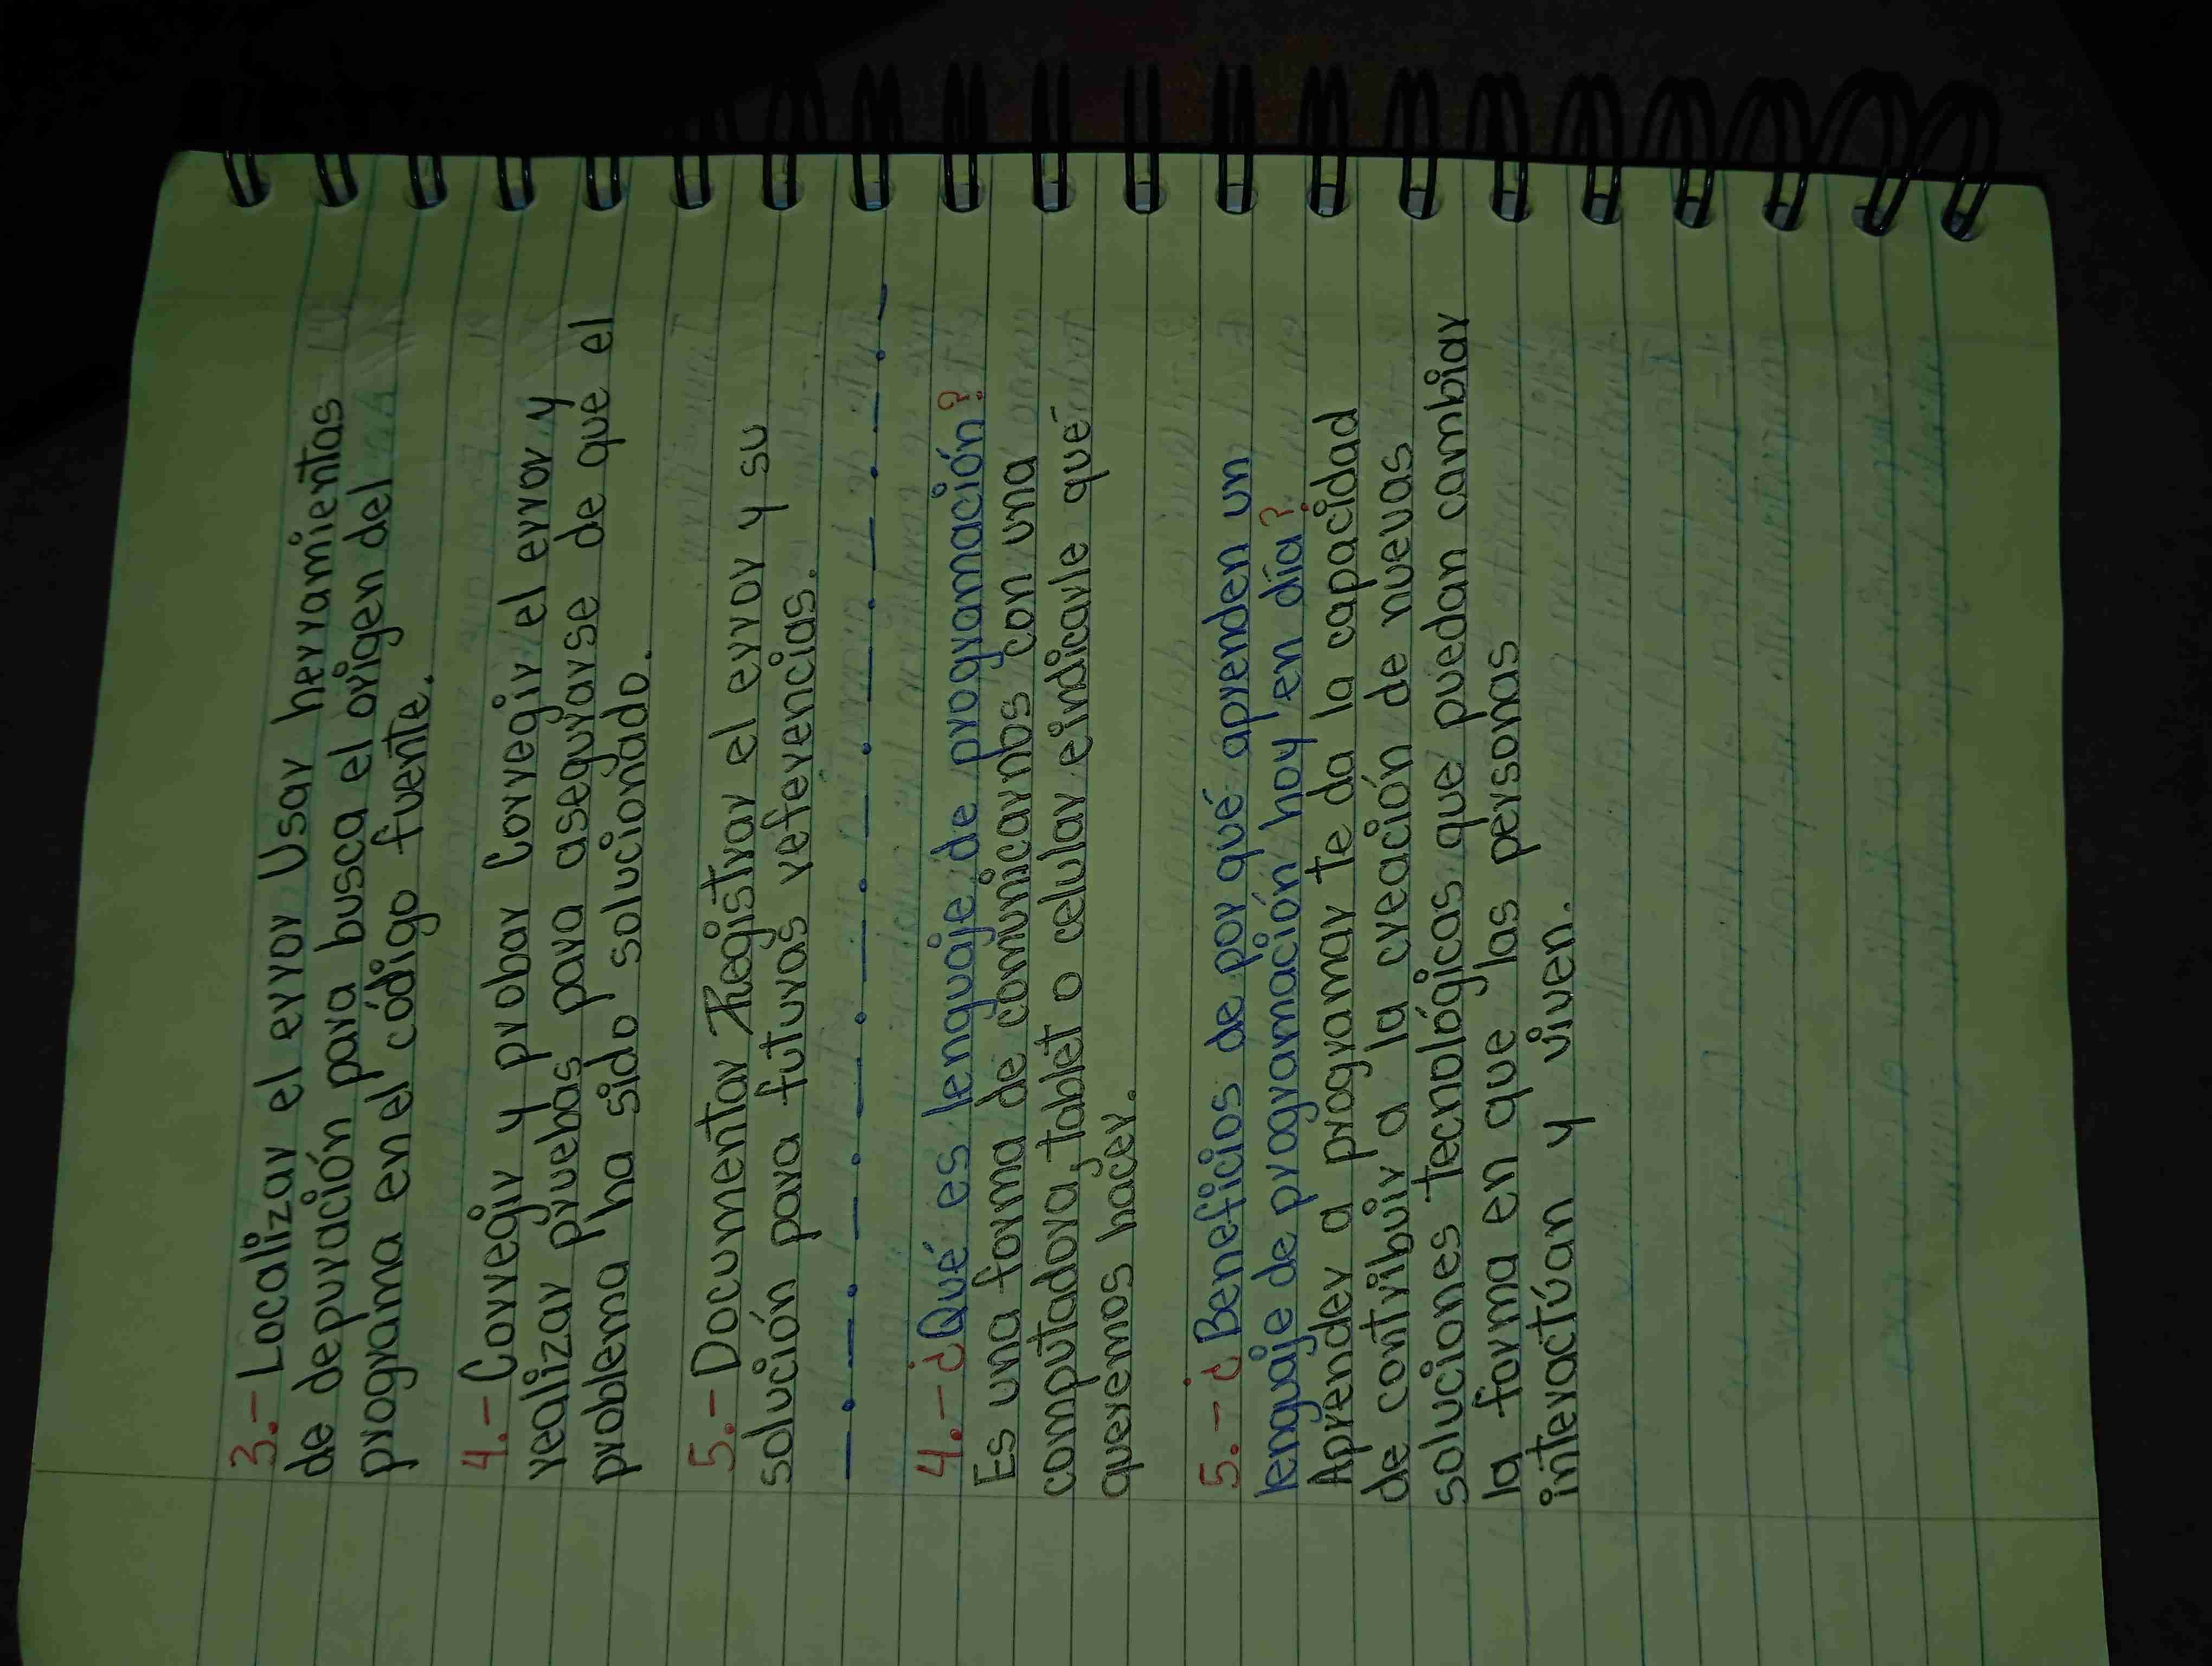 3.- Localizar el error Usar herramientas
de depuración para busca el origen del
programa en el código fuente.
4.- Corregir y probar Corregir el error y
realizar pruebas para asegurarse de que el
problema ha sido solucionado.
5.- Documentar Registrar el error y su
solución para futuras referencias.
4.- ¿Qué es lenguaje de programación?
Es una forma de comunicarnos con una
computadora, tablet o celular eindicarle qué
queremos hacer.
5.- ¿Beneficios de por qué aprenden un
lenguaje de programación hoy en día?
Aprender a programar te da la capacidad
de contribuir a la creación de nuevas
soluciones tecnológicas que puedan cambiar
la forma en que las personas
interactúan y viven.